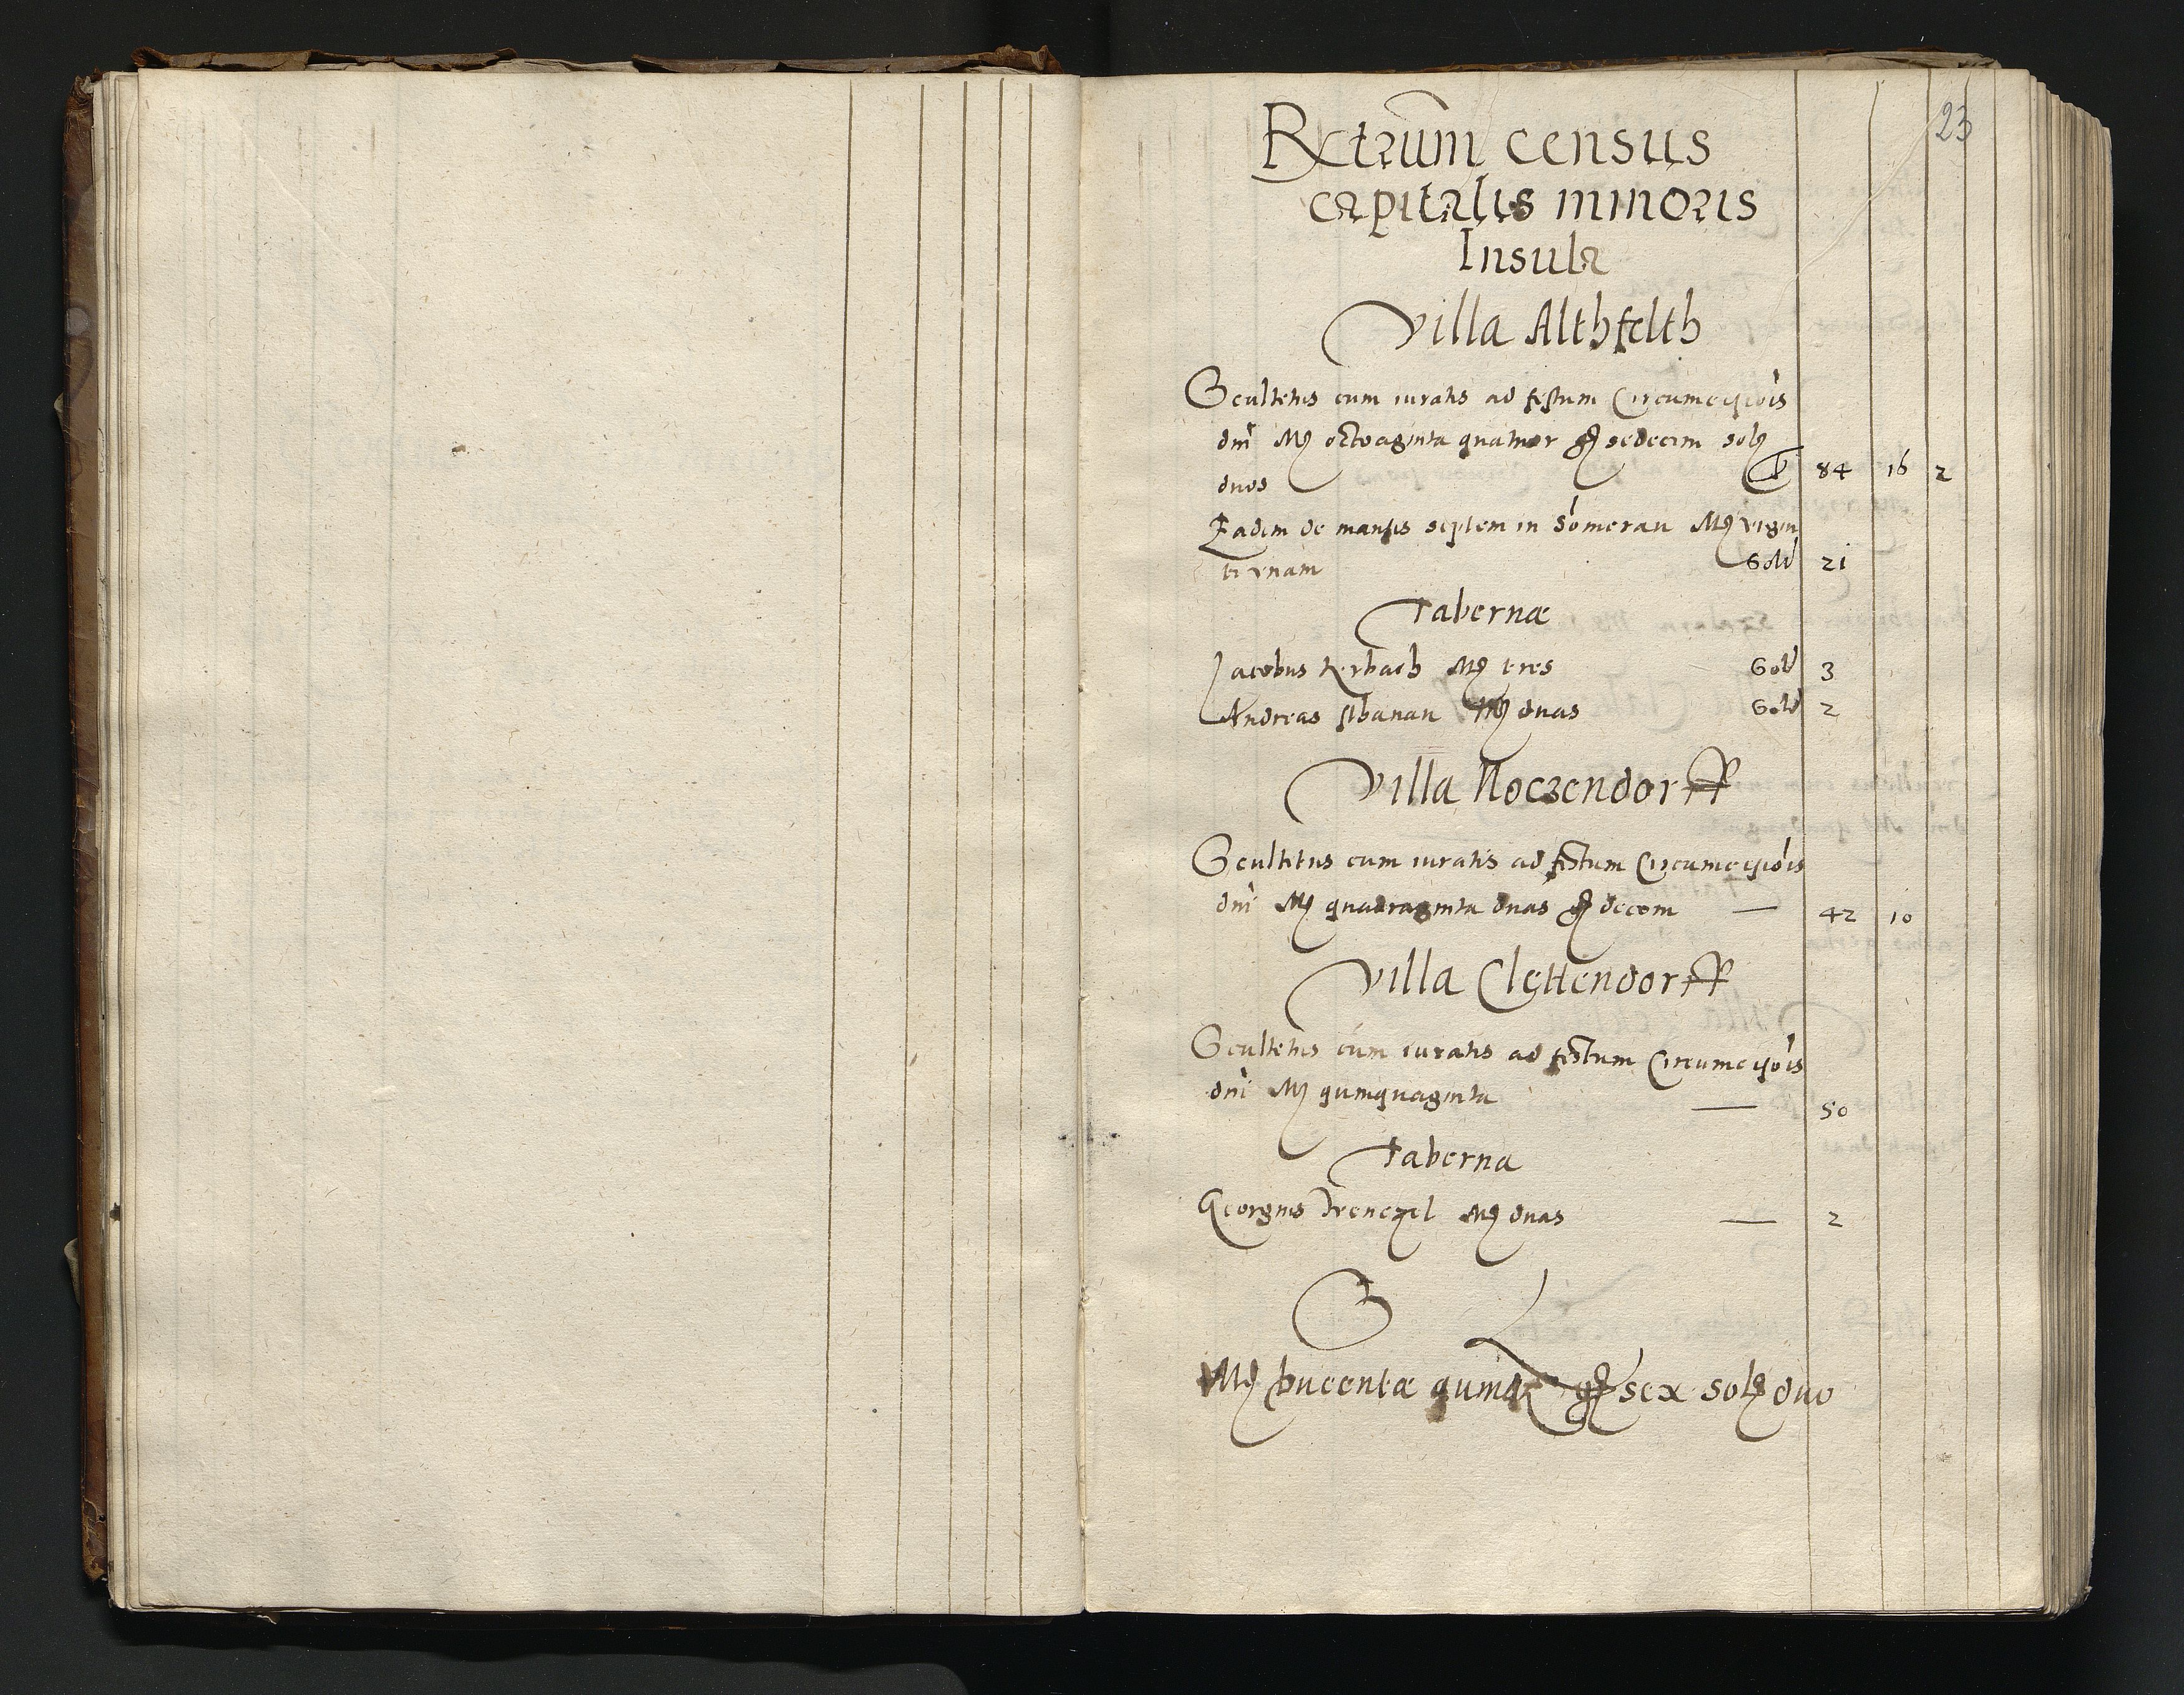 23
Rxtrum census
capitalis minoris
Insula
Villa Althfelth
Scultetus cum iuratis ad festum Circumcisiois
dni Mr octoaginta quatuor gr sedecim sol
duos 84 16 2
Eadem de mansis septem in Someraw Mr vigin
ti vnam Sold 21
Tabernæ
Jacobus Kerbach Mr tres Sold 3
Andreas Mr duas Sold 2
Villa Noczendorff
Scultetus cum iuratis ad festum Circumcisiois
dni Mr quadraginta duas gr decem — 42 10
Villa Clettendorff
Scultetus cum iuratis ad festum Circumcisiois
dni Mr quinquaginta — 50
Taberna
Georgius Frenczel Mr duas — 2
S L
Mr ducentæ quinq gr sex sol duo